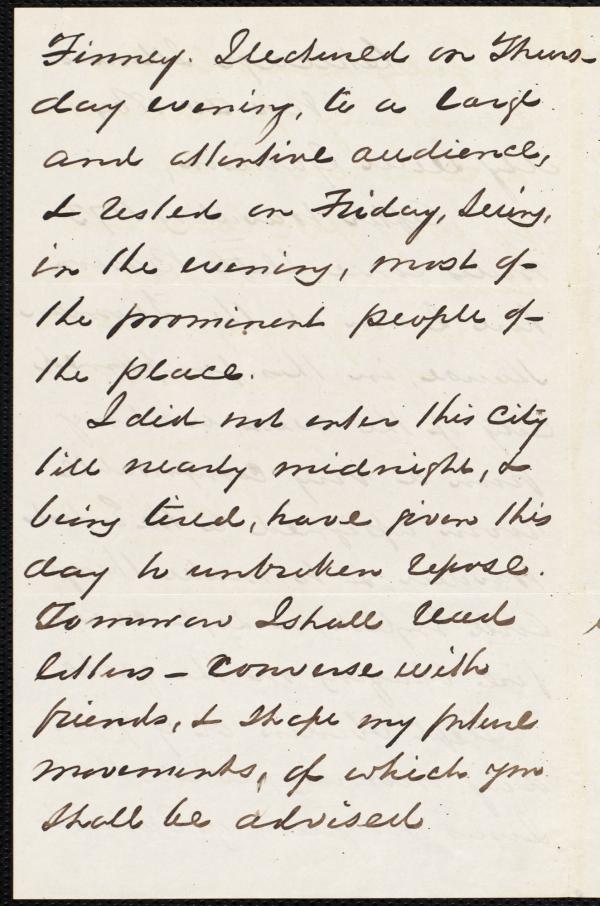 Finney. I lectured on Thurs-
day evening, to a large
and attentive audience,
& rested on Friday, seeing,
in the evening, most of
the prominent people of
the place.
I did not enter this city
till nearly midnight, &
being tired, have given this
day to unbroken repose.
Tomorrow I shall read
letters - converse with
friends, & shape my future
movements, of which you
shall be advised